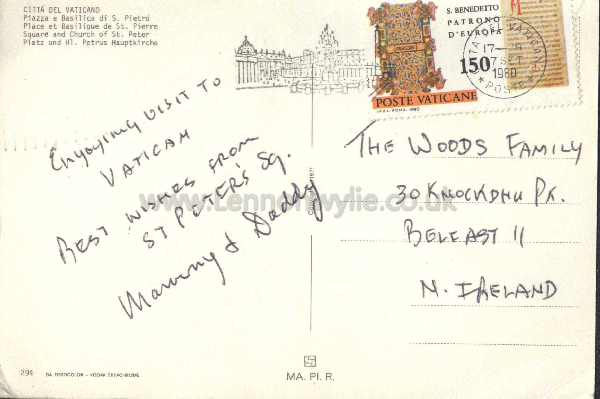 CITTÀ DEL VATICANO
Piazza e Basilica di S. Pietro
Place et Basilique de St. Pierre
Square and Church of St. Peter
Platz und Hl. Petrus Hauptkirche
S. BENEDETTO
PATRONO
D'EUROPA
150
POSTE VATICANE
17-
1980
POSTE
Enjoying visit to
VATICAN
BEST WISHES FROM
ST PETER'S SQ.
Mammy & Daddy
THE WOODS FAMILY
30 KNOCKDHU PK.
BELFAST 11
N. IRELAND
www.lennonwylie.co.uk
294
DA FOTOCOLOR - KODAK EKTACHROME
MA. PI. R.